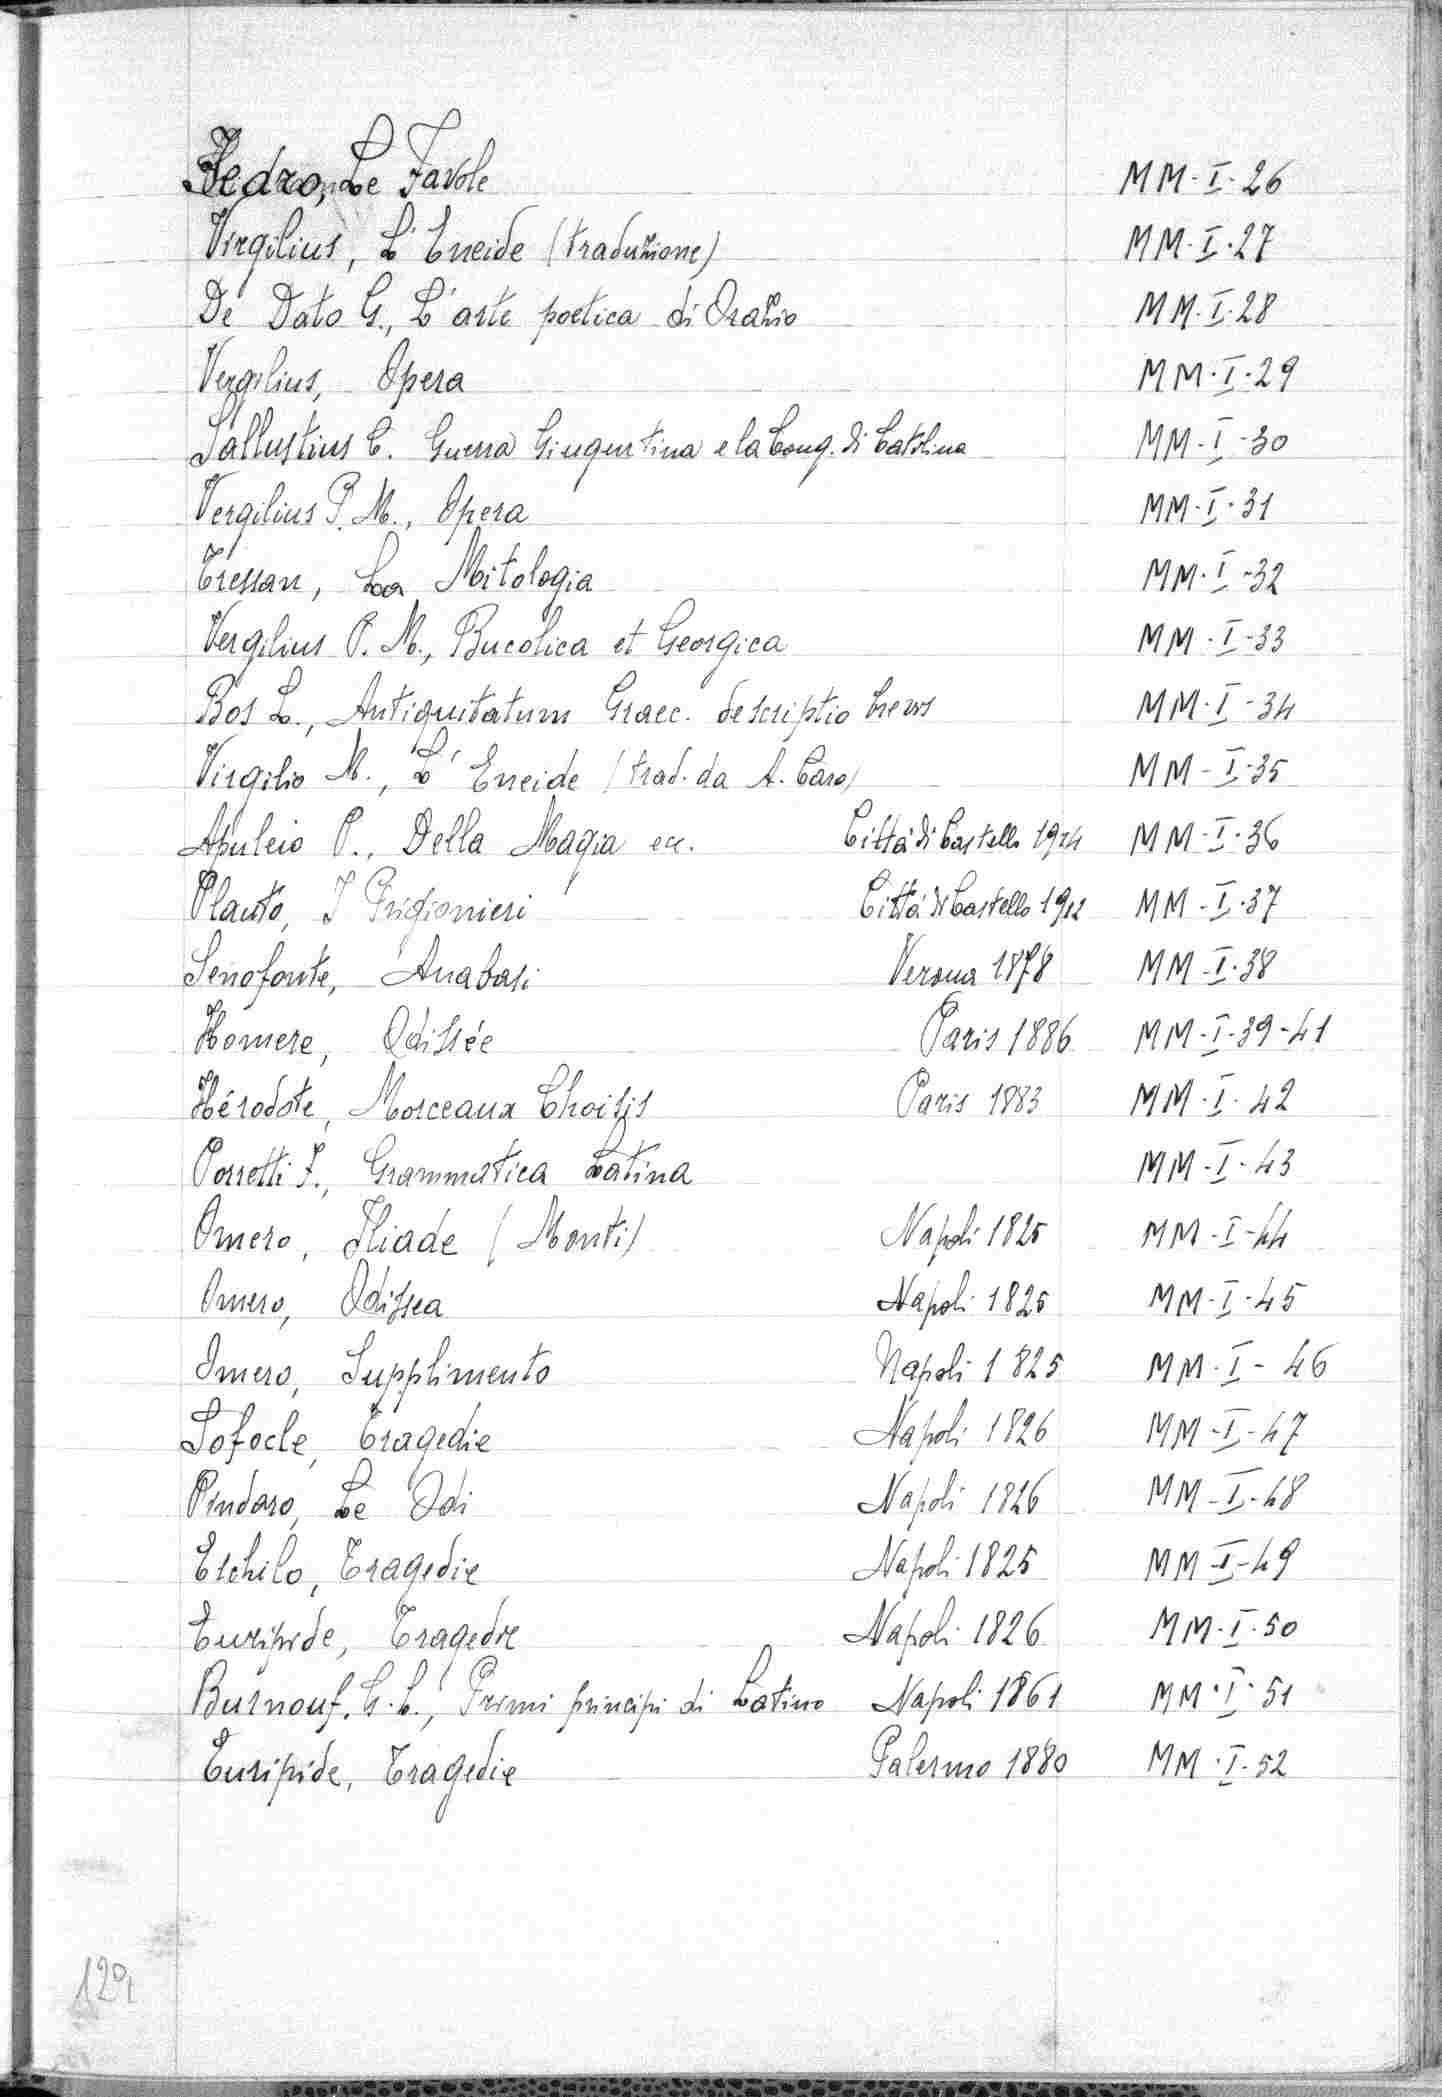 Fedro, Le Favole MM-I-26
Virgilius, L'Eneide (traduzione) MM-I-27
De Dato G., L'arte poetica di Orazio MM-I-28
Vergilius, Opera MM-I-29
Sallustius C. Guerra Giugurtina e la Cong. di Catilina MM-I-30
Vergilius P. M., Opera MM-I-31
Tressan, La Mitologia MM-I-32
Vergilius P. M., Bucolica et Georgica MM-I-33
Bos L., Antiquitatum Graec. descriptio brevis MM-I-34
Virgilio M., L'Eneide (trad. da A. Caro) MM-I-35
Apuleio P., Della Magia ecc. Città di Castello 1914 MM-I-36
Plauto, I Prigionieri Città di Castello 1912 MM-I-37
Senofonte, Anabasi Verona 1878 MM-I-38
Homere, Odissée Paris 1886 MM-I-39-41
Hérodote, Morceaux Choisis Paris 1883 MM-I-42
Porretti F., Grammatica Latina MM-I-43
Omero, Iliade (Monti) Napoli 1825 MM-I-44
Omero, Odissea Napoli 1825 MM-I-45
Omero, Supplimento Napoli 1825 MM-I-46
Sofocle, Tragedie Napoli 1826 MM-I-47
Pindaro, Le Odi Napoli 1826 MM-I-48
Eschilo, Tragedie Napoli 1825 MM-I-49
Euripide, Tragedie Napoli 1826 MM-I-50
Burnouf, G. L., Primi principi di Latino Napoli 1861 MM-I-51
Euripide, Tragedie Palermo 1880 MM-I-52